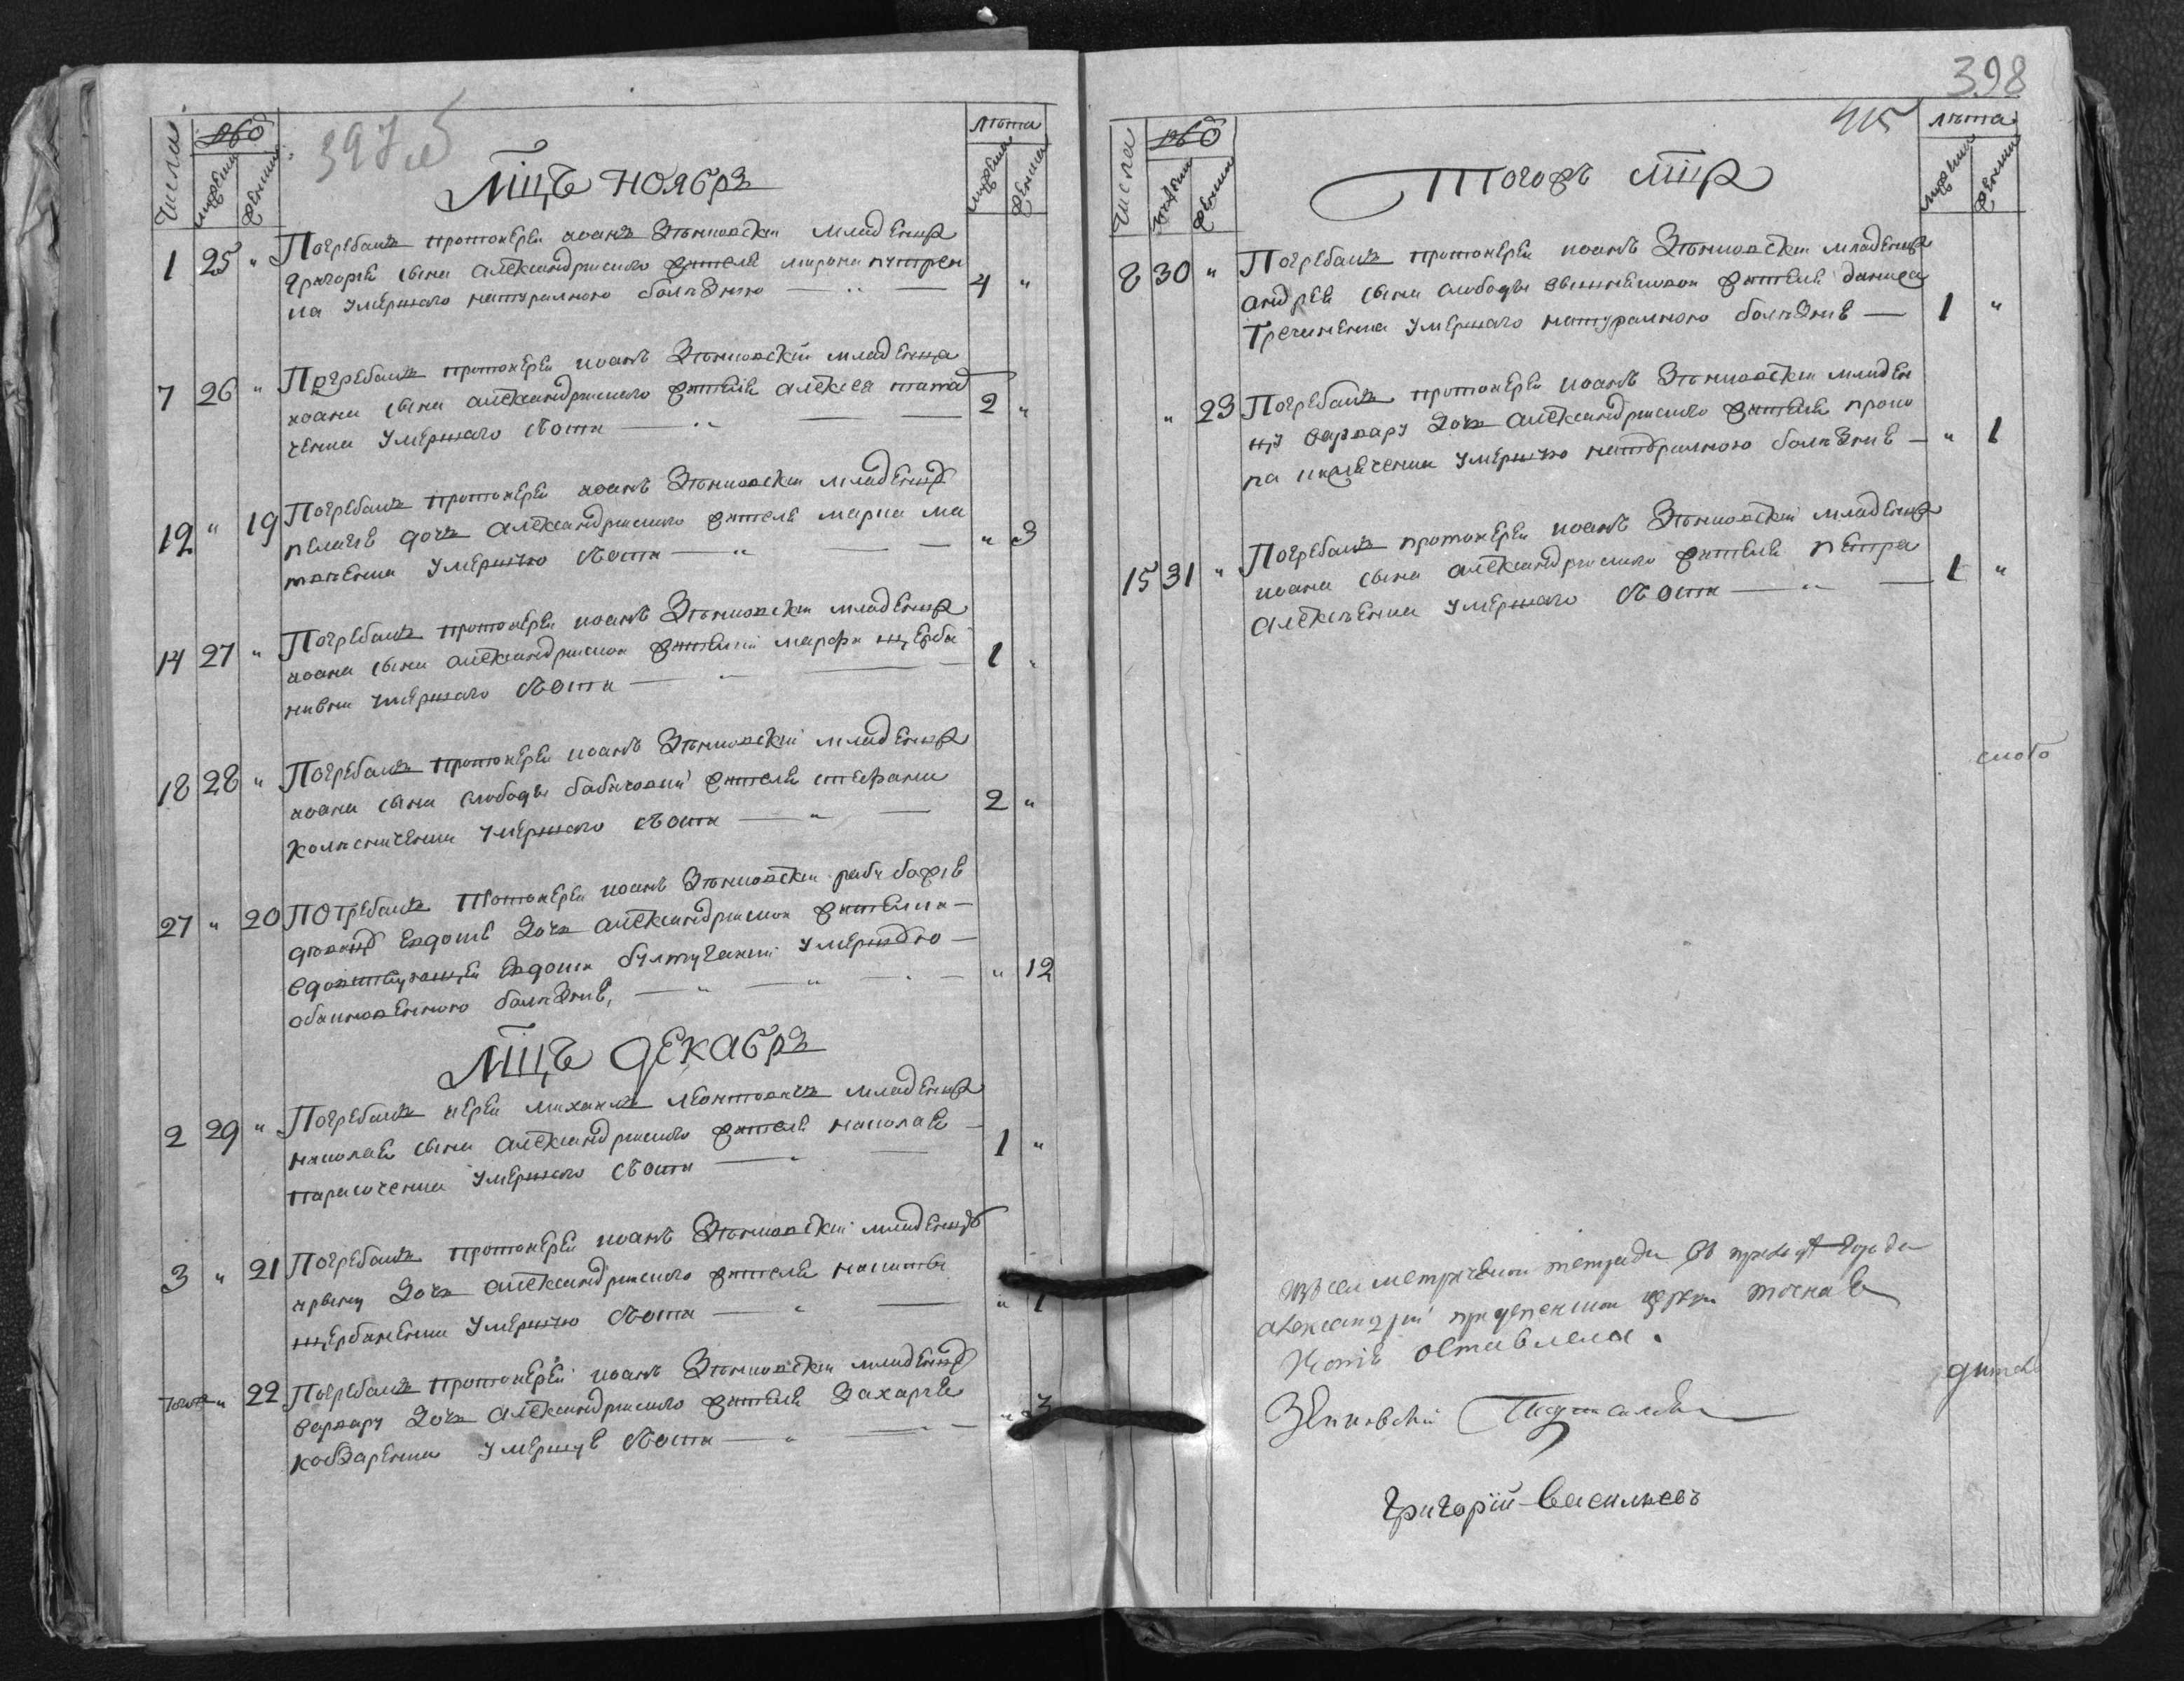 397 об
Числа
мужеска
женска
лѣта
мужеска
женска
Мцъ ноябрь
1 25 " Погребалъ протоиерей иоанъ Зѣнковскій младенца
Григорія сына александрийского жителя мирона
умершаго натуралною болѣзнию 4 "
7 26 " Погребалъ протоиерей иоанъ Зѣнковскій младенца
иоана сына александрийского жителя алексея
ченка умершаго своти 2 "
12 " 19 Погребалъ протоиерей иоанъ Зѣнковскій младенца
пелагію дочь александрийского жителя марка ма
твѣенка умершую своти " 3
14 27 " Погребалъ протоиерей иоанъ Зѣнковскій младенца
иоана сына александрийской жителки марфи щерба
нивни умершаго своти 1 "
18 28 " Погребалъ протоиерей иоанъ Зѣнковскій младенца
иоана сына слободы бабичовки жителя стефана
колесниченка умершаго своти 2 "
27 " 20 Погребалъ протоиерей иоанъ Зѣнковскій рабу божію
девицу евдокию дочь александрийской жителки
вдовствующей евдокии умершую
обикновенною болѣзнию " 12
Мцъ декабрь
2 29 " Погребалъ иерей михаилъ леонтовичъ младенца
николая сына александрийского жителя николая
умершаго своти 1 "
3 " 21 Погребалъ протоиерей иоанъ Зѣнковскій младенца
ирыну дочь александрийского жителя никиты
щербаненка умершую своти " 1
тогож " 22 Погребалъ протоиерей иоанъ Зѣнковскій младенца
варвару дочь александрийского жителя Захария
кобзаренка умершую своти " 3
398
415
Числа
мужеска
женска
лѣта
мужеска
женска
Тогожъ мца
8 30 " Погребалъ протоиерей иоанъ Зѣнковскій младенца
андрея сына слободы жителя данила
Гречиненка умершаго натуралною болѣзние 1 "
" 23 Погребалъ протоиерей иоанъ Зѣнковскій младен
цу варвару дочь александрийского жителя проко
па умершую натуралною болѣзние " 1
15 31 " Погребалъ протоиерей иоанъ Зѣнковскій младенца
иоана сына александрийского жителя петра
алексѣенка умершаго своти 1 "
слобо
метрической тетради
александрии церкви точная
Копія оставлена.
Зѣнковскій
Григорій Васильевъ
жителя